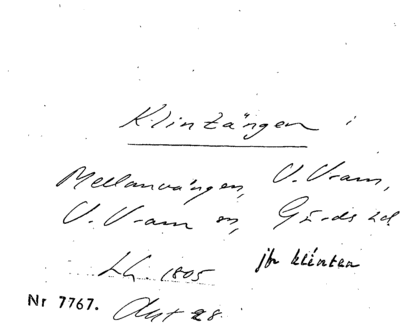 Klintängen i
Mellanvången, V. Vram,
V. Vram sn, Gärds hd
LG. 1805
jfr klinten
Nr 7767. Akt 28.